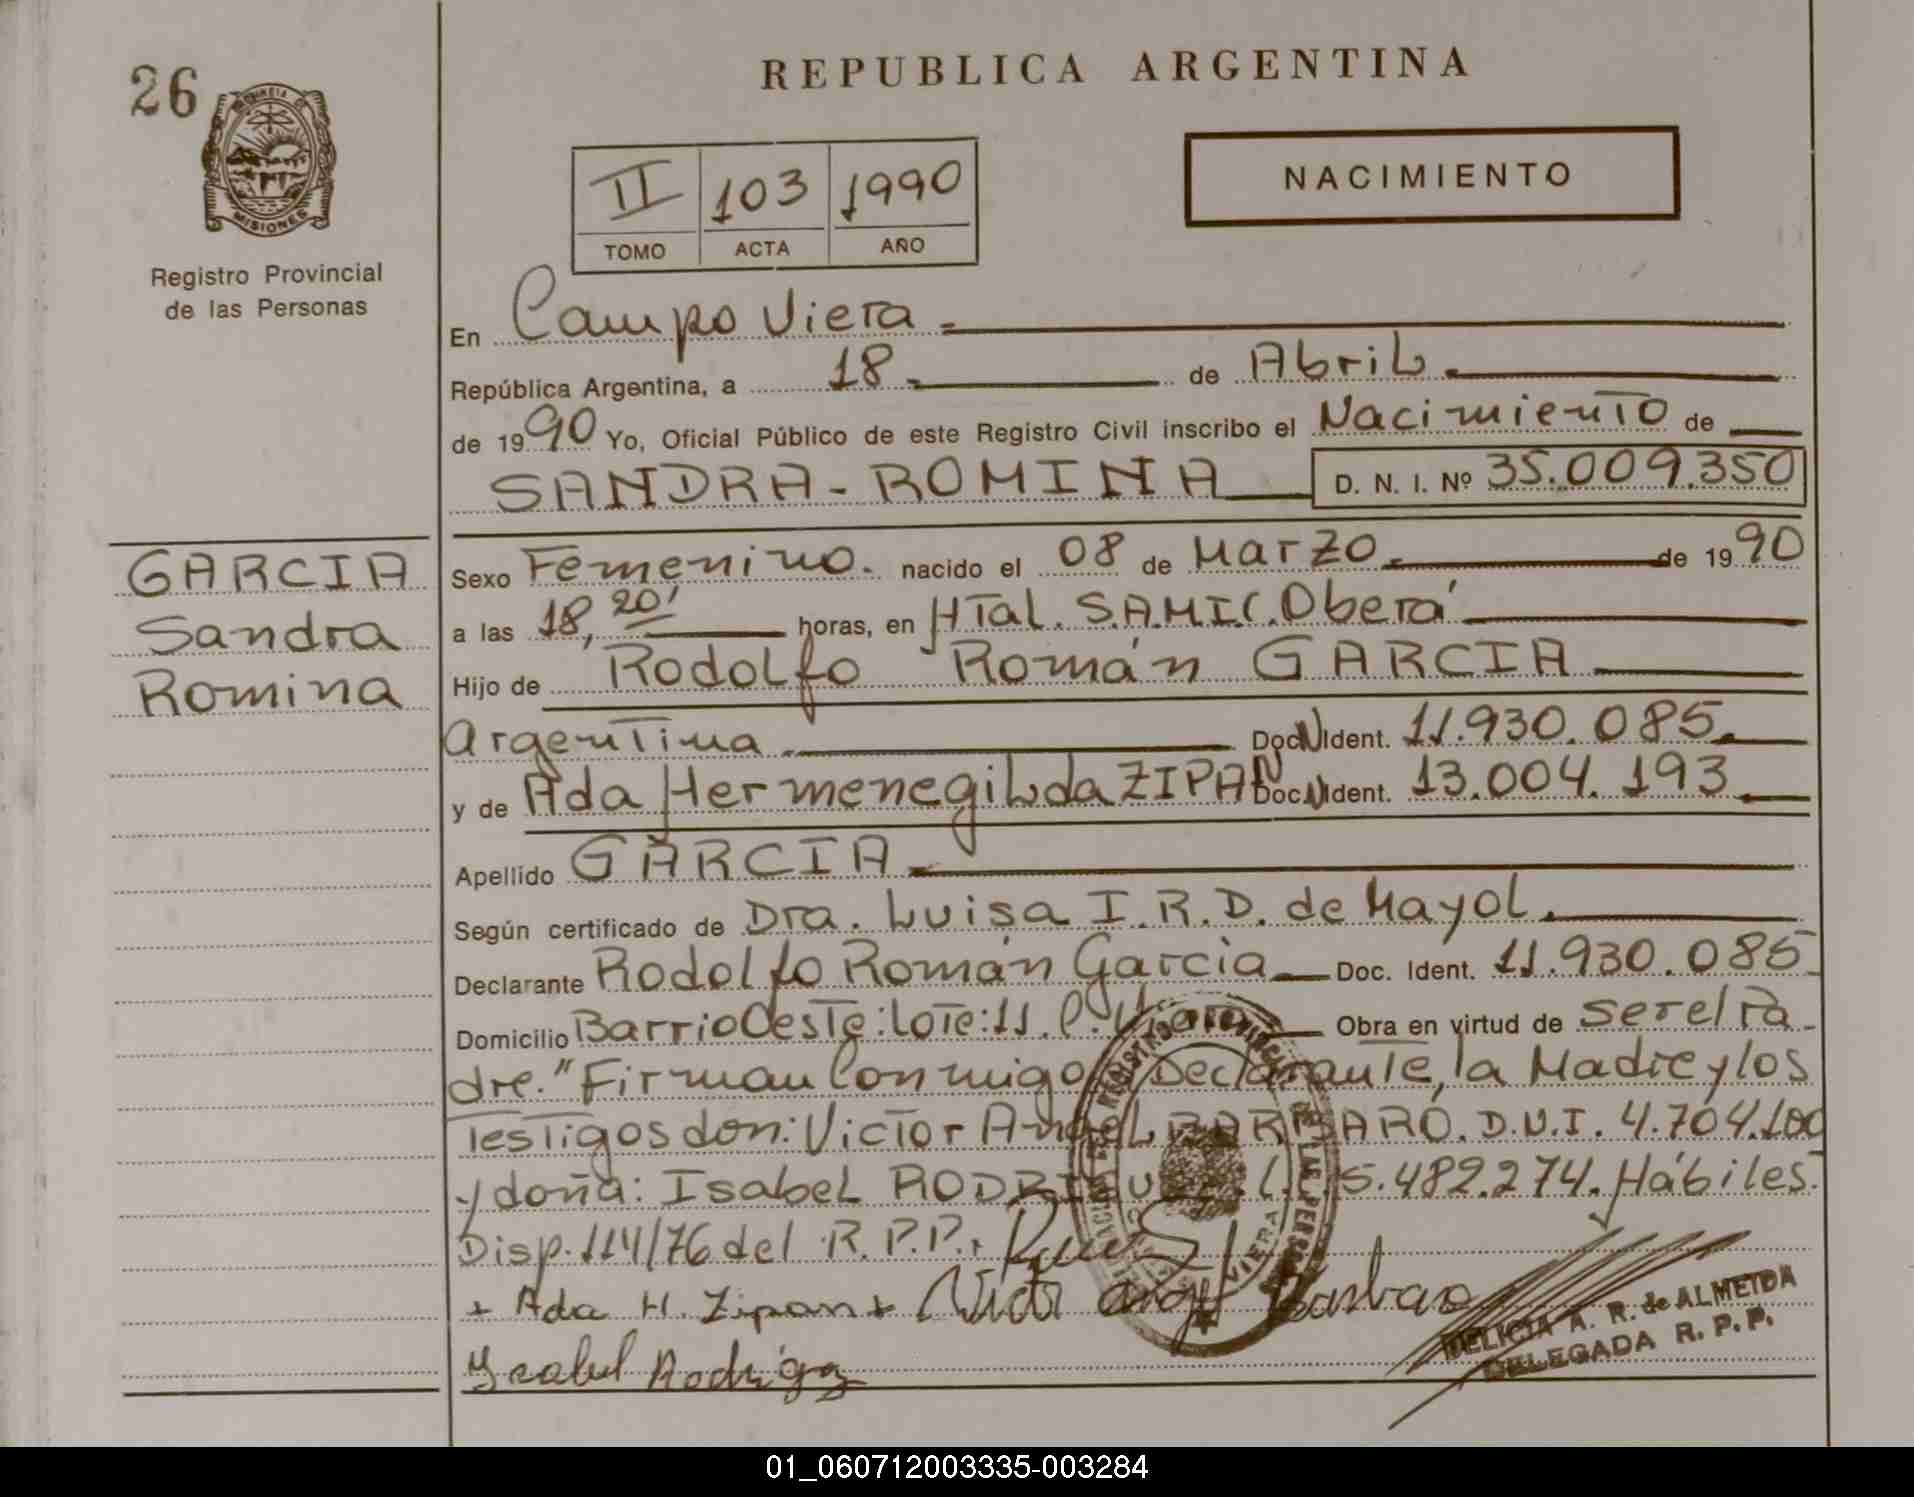 26
PROVINCIA DE
MISIONES
Registro Provincial
de las Personas
GARCIA
Sandra
Romina
REPUBLICA ARGENTINA
II 103 1990
TOMO ACTA AÑO
NACIMIENTO
En Campo Viera
República Argentina, a 18 de Abril
de 1990 Yo, Oficial Público de este Registro Civil inscribo el Nacimiento de
SANDRA-ROMINA D. N. I. Nº 35.009.350
Sexo Femenino. nacido el 08 de Marzo de 1990
a las 18,20' horas, en HTal. S.A.M.I.C. Oberá
Hijo de Rodolfo Román GARCIA
Argentina Doc. N. Ident. 11.930.085
y de Ada Hermenegilda ZIPAN Doc. N. Ident. 13.004.193
Apellido GARCIA
Según certificado de Dra. Luisa I.R.D. de Mayol.
Declarante Rodolfo Román Garcia Doc. Ident. 11.930.085
Domicilio Barrio Oeste: Lote: 11. C. Obra en virtud de ser el Pa-
dre." Firman Conmigo Declarante, la Madre y los
Testigos don: Victor Angel BARBARO. D.N.I. 4.704.100
y doña: Isabel RODRIGUEZ. L.C. 5.482.274. Hábiles.
Disp. 114/76 del R. P.P.
+ Ada H. Zipan +
Ysabel Rodrigez
DELICIA A. R. de ALMEIDA
DELEGADA R. P. P.
01_060712003335-003284